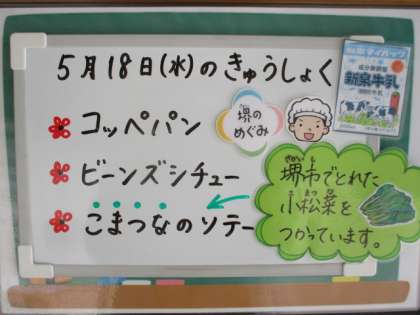 5月18日(水)のきゅうしょく
コッペパン
堺の
めぐみ
ビーンズシチュー
こまつなのソテー
さかいし
堺市でとれた
こまつな
小松菜を
つかっています。
成分無調整
新泉牛乳